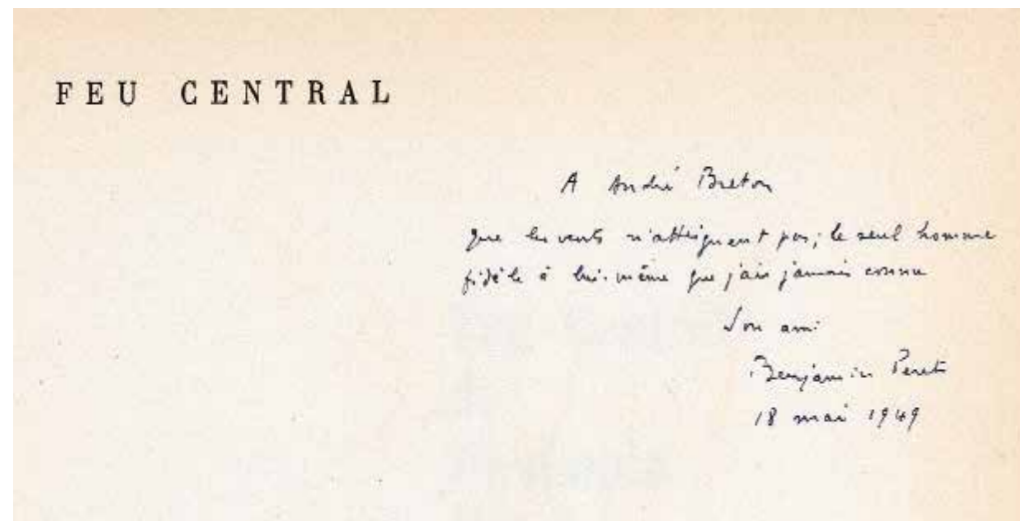 FEU CENTRAL
A André Breton
que les vents n'atteignent pas, le seul homme
fidèle à lui-même que j'ais jamais connu
Son ami
Benjamin Peret
18 mai 1949